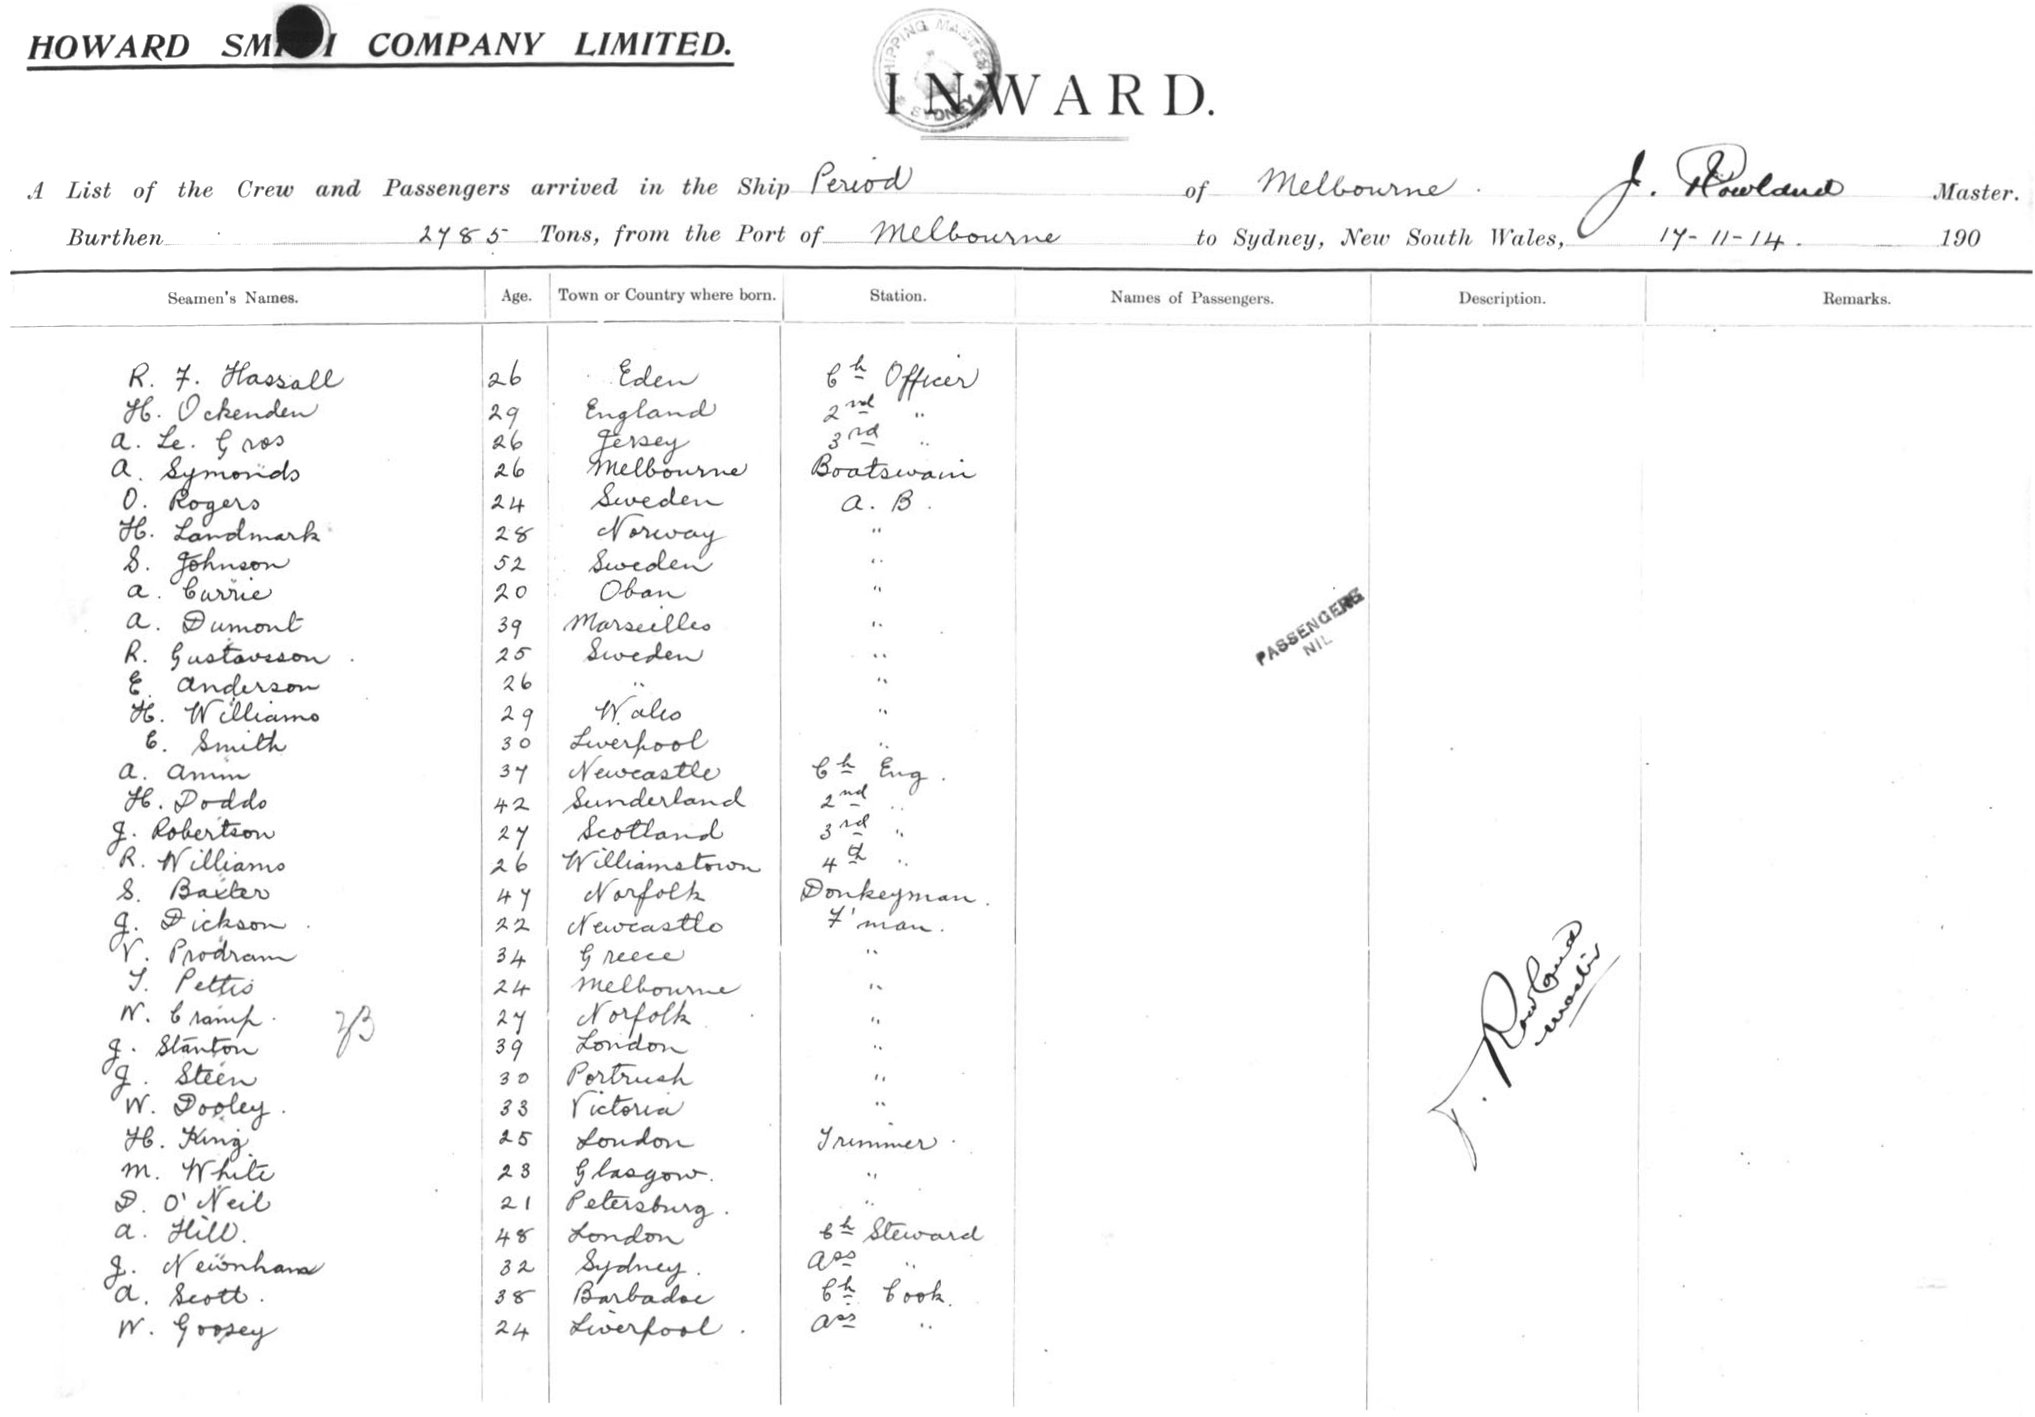 HOWARD SMITH COMPANY LIMITED.
SHIPPING MASTER SYDNEY
INWARD.
A List of the Crew and Passengers arrived in the Ship Period of Melbourne. J. Rowland Master.
Burthen 2785 Tons, from the Port of Melbourne to Sydney, New South Wales, 17-11-14. 190
Seamen's Names. Age. Town or Country where born. Station. Names of Passengers. Description. Remarks.
R. F. Hassall 26 Eden Ch Officer
H. Ockenden 29 England 2nd "
A. Le. Gros 26 Jersey 3rd "
A. Symonds 26 Melbourne Boatswain
O. Rogers 24 Sweden A. B.
H. Landmark 28 Norway "
S. Johnson 52 Sweden "
A. Currie 20 Oban "
A. Dumont 39 Marseilles "
R. Gustavsson 25 Sweden "
E. Anderson 26 " "
H. Williams 29 Wales "
C. Smith 30 Liverpool "
A. Amm 37 Newcastle Ch Eng.
H. Dodds 42 Sunderland 2nd "
J. Robertson 27 Scotland 3rd "
R. Williams 26 Williamstown 4th "
S. Baxter 47 Norfolk Donkeyman.
J. Dickson 22 Newcastle F'man.
V. Prodram 34 Greece "
T. Pettis 24 Melbourne "
W. Cramp. 27 Norfolk "
J. Stanton 39 London "
J. Steen 30 Portrush "
W. Dooley. 33 Victoria "
H. King 25 London Trimmer.
M. White 23 Glasgow. "
D. O'Neil 21 Petersburg. "
A. Hill. 48 London Ch Steward
J. Newnham 32 Sydney. Ass "
A. Scott. 38 Barbadoe Ch Cook.
W. Goosey 24 Liverpool. Ass "
PASSENGERS
NIL
J. Rowland
Master